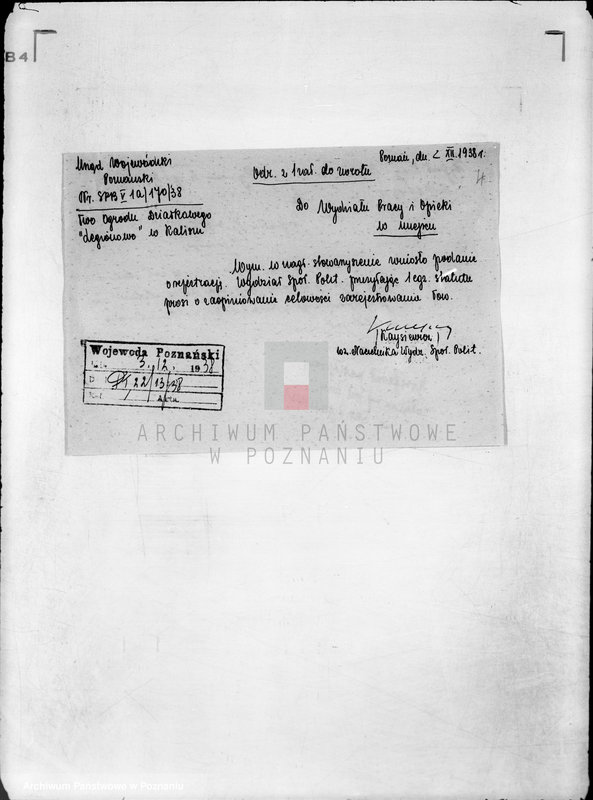 B4
Urząd Wojewódzki
Poznański
Nr. SPB V 1a/170/38
Two Ogrodu Działkowego
"Legionowo" w Kaliszu
Poznań, dn. 2 XII. 1938 r.
4
Odr. z 1 zał. do zwrotu
Do Wydziału Pracy i Opieki
w miejscu
Wym. w nagł. stowarzyszenie wniosło podanie
o rejestrację. Wydział Społ. Polit. przesyłając 1 egz. statutu
prosi o zaopiniowanie celowości zarejestrowania Tow.
wz. Naczelnika Wydz. Społ. Polit.
Wojewoda Poznański
3. 12. 1938
22/13/38
ARCHIWUM PAŃSTWOWE
W POZNANIU
Archiwum Państwowe w Poznaniu